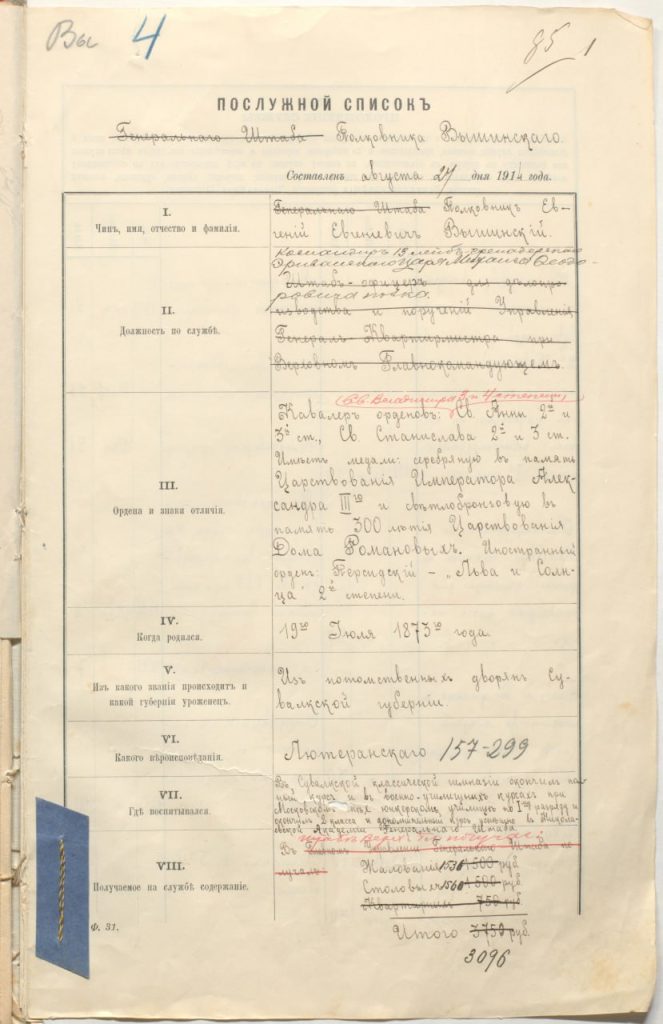 Вы 4
85 1
ПОСЛУЖНОЙ СПИСОКЪ
Генеральнаго Штаба Полковника Вышинскаго.
Составленъ августа 27 дня 1914 года.
I.
Чинъ, имя, отчество и фамилія.
Генеральнаго Штаба Полковникъ Ев-
геній Евгеніевичъ Вышинскій.
II.
Должность по службѣ.
Командиръ 13 лейбъ-гренадерскаго
Эриванскаго Царя Михаила Ѳеодо-
Штабъ-офицеръ для дѣлопро-
ровича полка.
изводства и порученій Управленія
Генералъ Квартирмистра при
Верховномъ Главнокомандующемъ
III.
Ордена и знаки отличія.
Св. Владиміра 3 и 4 степени,
Кавалеръ орденовъ: Св Анны 2й и
3й ст., Св Станислава 2й и 3 ст.
Имѣетъ медали: серебряную въ память
Царствованія Императора Алек-
сандра IIIго и свѣтлобронзовую въ
память 300 лѣтія Царствованія
Дома Романовыхъ. Иностранный
орденъ: Персидскій – „Льва и Солн-
ца" 2й степени.
IV.
Когда родился.
19го Іюля 1873го года.
V.
Изъ какого званія происходитъ и
какой губерніи уроженецъ.
Изъ потомственныхъ дворянъ Су-
валкской губерніи.
VI.
Какого вѣроисповѣданія.
Лютеранскаго 157-299
VII.
Гдѣ воспитывался.
Въ Сувалкской классической гимназіи окончилъ пол-
ный курсъ и въ военно-училищныхъ курсахъ при
Московскомъ пѣх. юнкерскомъ училищѣ по Iму разряду и
окончилъ 2 класса и дополнительный курсъ успѣшно въ Никола-
евской Академіи Генеральнаго Штаба
VIII.
Получаемое на службѣ содержаніе.
Въ Главномъ Управленіи Генеральнаго Штаба по
лучалъ:
Жалованія 1536 1500 руб
Столовыхъ 1560 1500 руб.
Квартирныхъ 750 руб
Итого 3750 руб.
3096
Ф. 31.